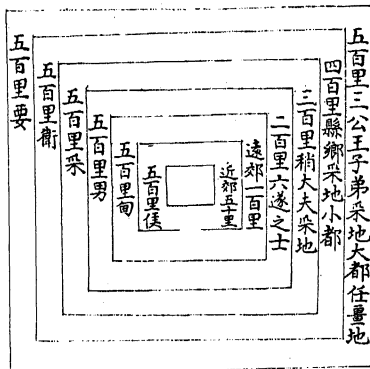 五百里三公王子弟采地大都任畺地
四百里縣鄉采地小都
三百里稍大夫采地
二百里六遂之士
遠郊一百里
近郊五十里
五百里侯
五百里甸
五百里男
五百里采
五百里衛
五百里要